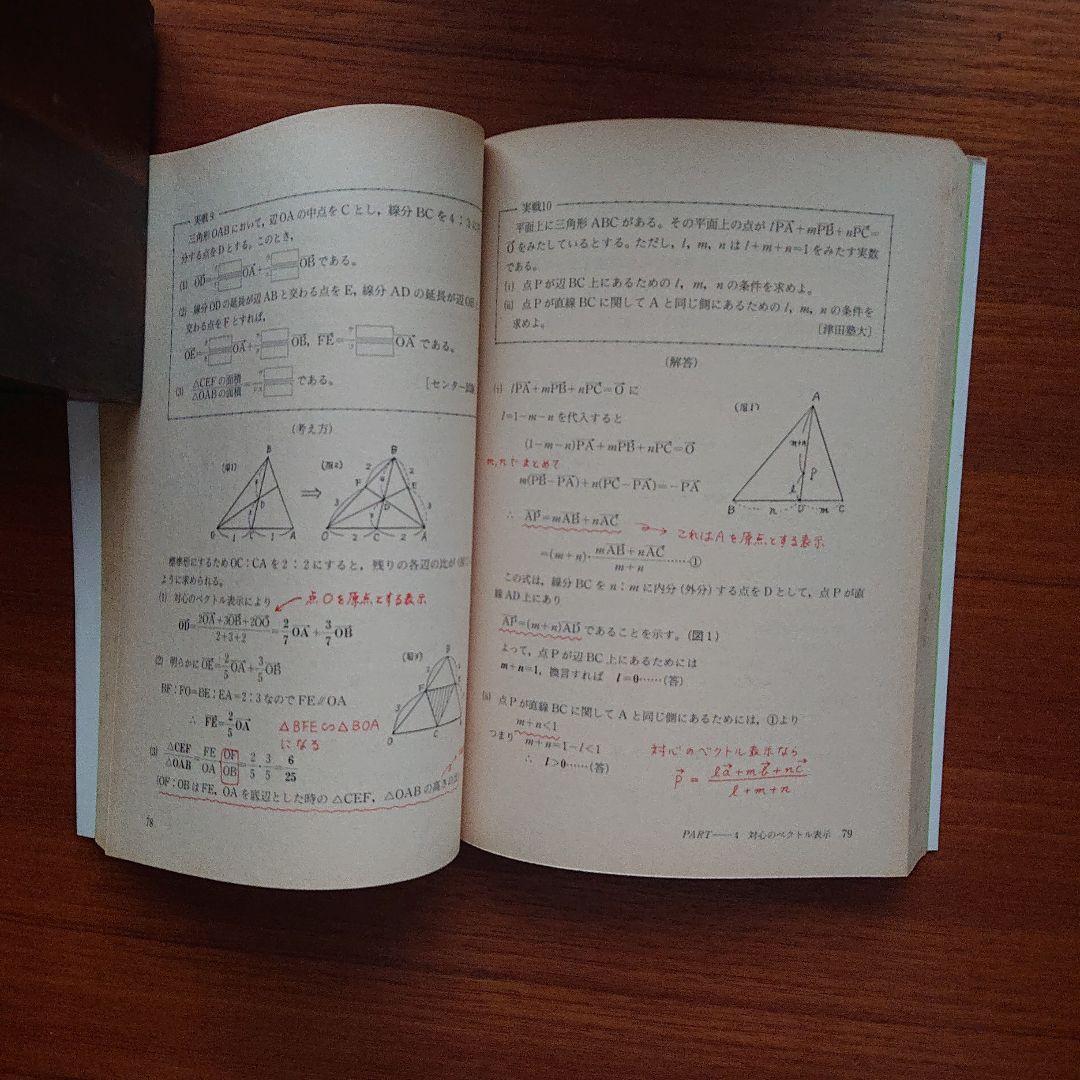 実戦9
三角形OABにおいて，辺OAの中点をCとし，線分BCを4：3に
分する点をDとする。このとき，
(1) OD⃗=OA⃗+OB⃗である。
(2) 線分ODの延長が辺ABと交わる点をE，線分ADの延長が辺OB
交わる点をFとすれば，
OE⃗=OA⃗+OB⃗，FE⃗=OA⃗である。
(3) △CEFの面積/△OABの面積=である。
[センター試験
(考え方)
(図1) (図2)
B B
D F E D
O 1 C 1 A O 2 C 2 A
標準形にするためOC：CAを2：2にすると，残りの各辺の比が
ように求められる。
(1) 対心のベクトル表示により
点Oを原点とする表示
OD⃗=(2OA⃗+3OB⃗+2OO⃗)/(2+3+2)=2/7 OA⃗+3/7 OB⃗
(2) 明らかにOE⃗=2/5 OA⃗+3/5 OB⃗
(図3)
BF：FO=BE：EA=2：3なのでFE∥OA
∴ FE⃗=2/5 OA⃗
△BFE∽△BOA
になる
(3) △CEF/△OAB=FE/OA・OF/OB=2/5・3/5=6/25
(OF：OBはFE，OAを底辺とした時の△CEF，△OABの高さの
78
実戦10
平面上に三角形ABCがある。その平面上の点がlPA⃗+mPB⃗+nPC⃗=
O⃗をみたしているとする。ただし，l，m，nはl+m+n=1をみたす実数
である。
(i) 点Pが辺BC上にあるためのl，m，nの条件を求めよ。
(ii) 点Pが直線BCに関してAと同じ側にあるためのl，m，nの条件を
求めよ。
[津田塾大]
(解答)
(i) lPA⃗+mPB⃗+nPC⃗=O⃗に
l=1−m−nを代入すると
(1−m−n)PA⃗+mPB⃗+nPC⃗=O⃗
m,nでまとめて
m(PB⃗−PA⃗)+n(PC⃗−PA⃗)=−PA⃗
(図1)
A
m+n
P
l
B n D m C
∴ AP⃗=mAB⃗+nAC⃗
これはAを原点とする表示
=(m+n)・(mAB⃗+nAC⃗)/(m+n)……①
この式は，線分BCをn：mに内分(外分)する点をDとして，点Pが直
線AD上にあり
AP⃗=(m+n)AD⃗であることを示す。(図1)
よって，点Pが辺BC上にあるためには
m+n=1，換言すれば l=0……(答)
(ii) 点Pが直線BCに関してAと同じ側にあるためには，①より
m+n<1
つまり m+n=1−l<1
∴ l>0……(答)
対心のベクトル表示なら
p⃗=(la⃗+mb⃗+nc⃗)/(l+m+n)
PART──4 対心のベクトル表示 79